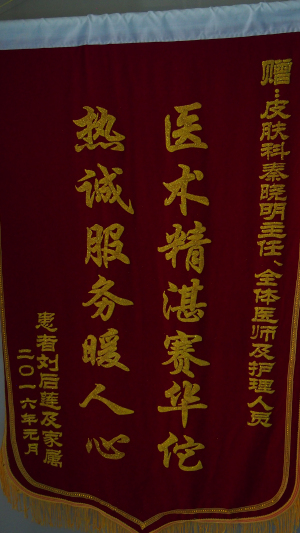 赠:皮肤科秦晓明主任、全体医师及护理人员
医术精湛赛华佗
热诚服务暖人心
患者刘后莲及家属
二〇一六年元月